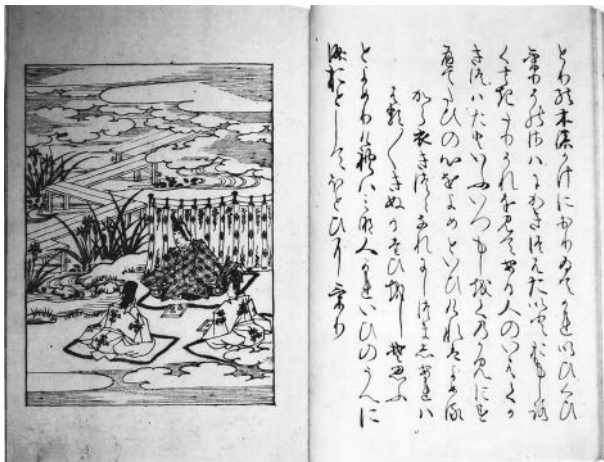 とりの木のかけにおりゐてかれいひくひ
けりその沢にかきつはたいとおもしろ
くさきたりそれを見てある人のいはくか
きつはたといふいつもしを句のかみにす
へてたひの心をよめといひけれはよめる
から衣きつゝなれにしつましあれは
はる〳〵きぬるたひをしそ思ふ
とよめりけれはみな人かれいひのうへに
涙おとしてほとひにけり